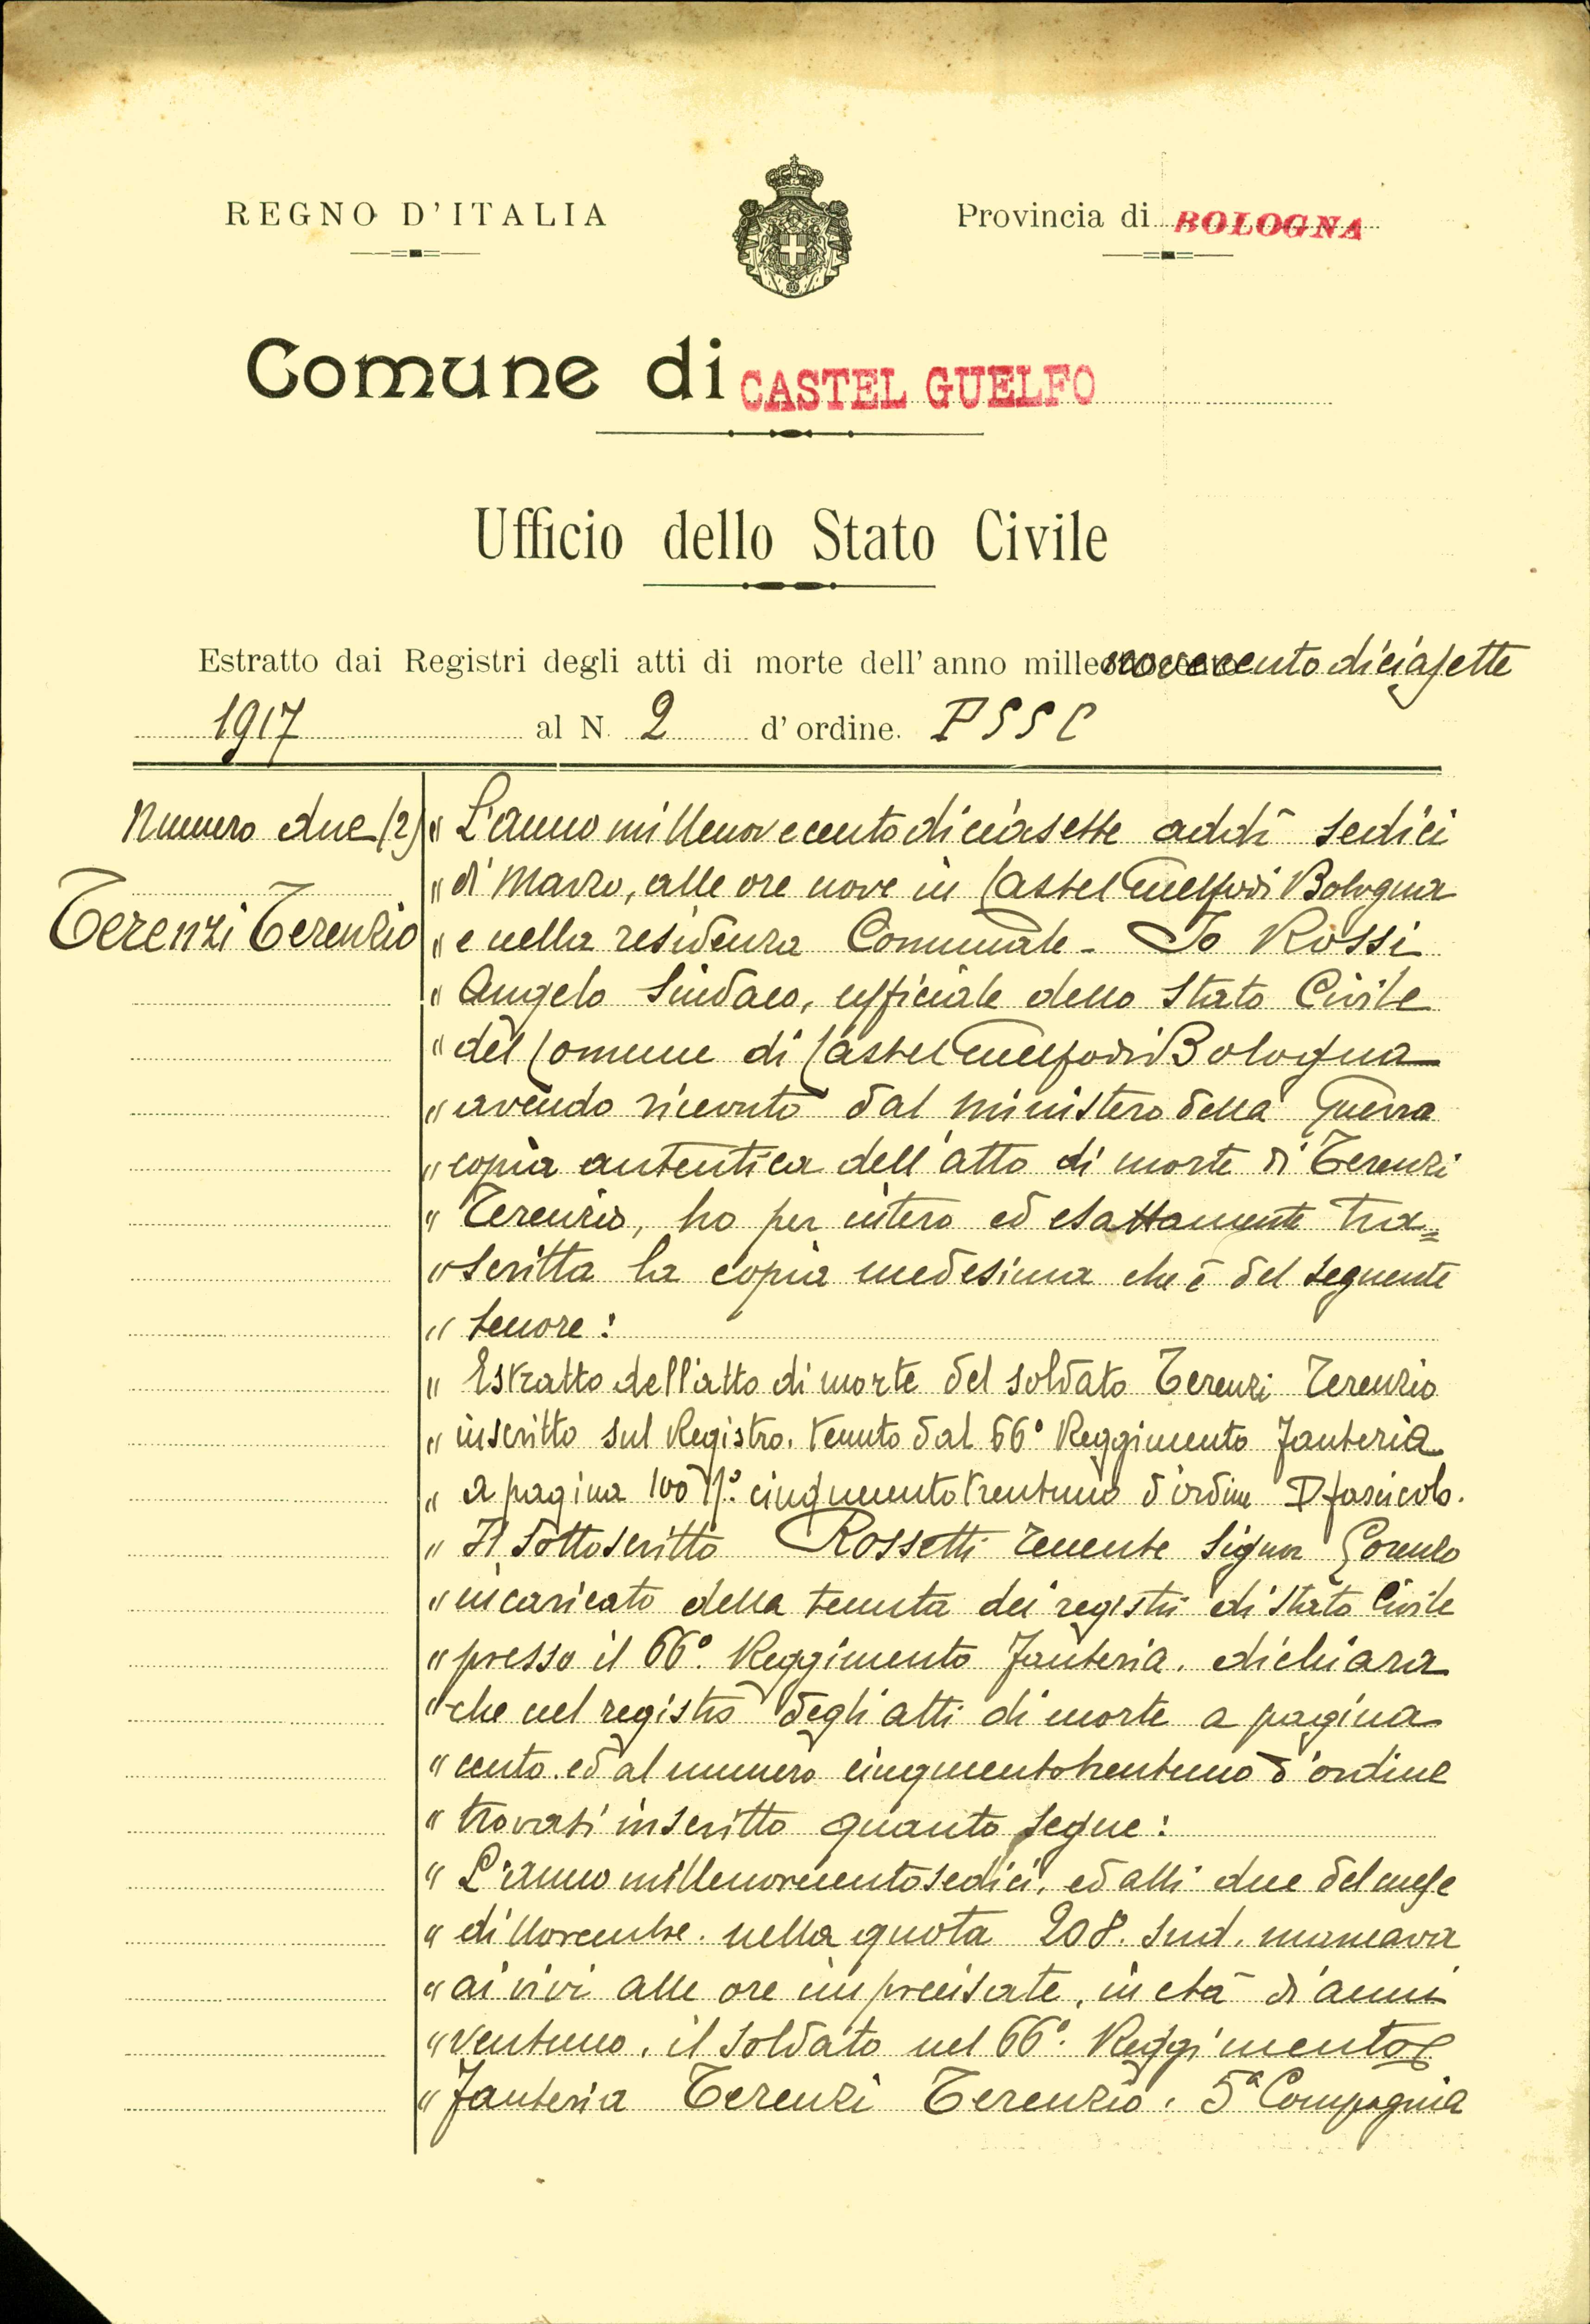 REGNO D'ITALIA
Provincia di BOLOGNA
Comune di CASTEL GUELFO
Ufficio dello Stato Civile
Estratto dai Registri degli atti di morte dell' anno millenovecentodiciasette
1917 al N. 2 d' ordine. P S S C
Numero due (2)
Terenzi Terenzio
" L'anno millenovecentodiciasette addì sedici
" di Marzo, alle ore nove in Castel Guelfo di Bologna
" e nella residenza Comunale - Io Rossi
" Angelo Sindaco, ufficiale dello Stato Civile
" del Comune di Castel Guelfo di Bologna
" avendo ricevuto dal Ministero della Guerra
" copia autentica dell'atto di morte di Terenzi
" Terenzio, ho per intero ed esattamente tra=
" scritta la copia medesima che è del seguente
" tenore:
" Estratto dell'atto di morte del soldato Terenzi Terenzio
" inscritto sul Registro. tenuto dal 66° Reggimento Fanteria
" a pagina 100 N.° cinquecentotrentuno d'ordine I fascicolo.
" Il sottoscritto Rossetti tenente Signor
" incaricato della tenuta dei registri di Stato Civile
" presso il 66°. Reggimento Fanteria. dichiara
" che nel registro degli atti di morte a pagina
" cento. ed al numero cinquecentotrentuno d'ordine
" trovasi inscritto quanto segue:
" L'anno millenovecentosedici, ed alli due del mese
" di Novembre. nella quota 208. Sud. mancava
" ai vivi alle ore imprecisate, in età di anni
" ventuno. il soldato nel 66°. Reggimento
" Fanteria Terenzi Terenzio. 5ª Compagnia